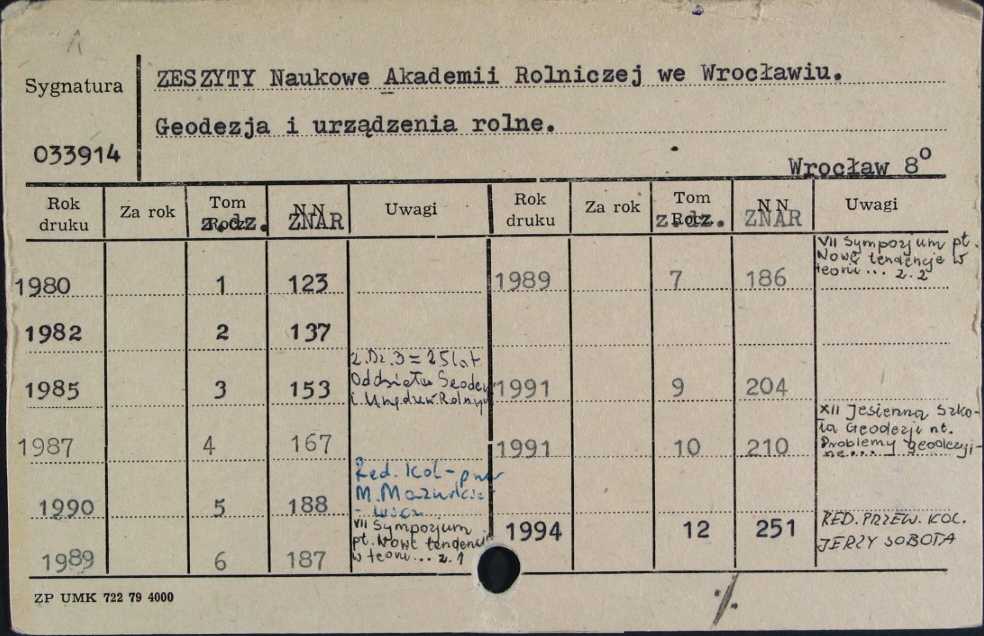 Sygnatura
ZESZYTY Naukowe Akademii Rolniczej we Wrocławiu.
Geodezja i urządzenia rolne.
033914
Wrocław 8º
Rok druku Za rok Tom z.dz. N N ZNAR Uwagi Rok druku Za rok Tom z.dz. N N ZNAR Uwagi
1980 1 123
1982 2 137
1985 3 153 z.Dz.3=25lat
Oddziału Geodez
i Urządzeń Rolnych
1987 4 167
1990 5 188 Red. Kol-
M. Mazurkie-
1989 6 187 VII Sympozjum
pt. Nowe tendencje
w teorii... z.1
1989 7 186 VII Sympozjum pt.
Nowe tendencje w
teorii... z.2
1991 9 204
1991 10 210 XII Jesienna Szko-
ła Geodezji nt.
Problemy geodezyj-
ne...
1994 12 251 RED. PRZEW. KOL.
JERZY SOBOTA
ZP UMK 722 79 4000